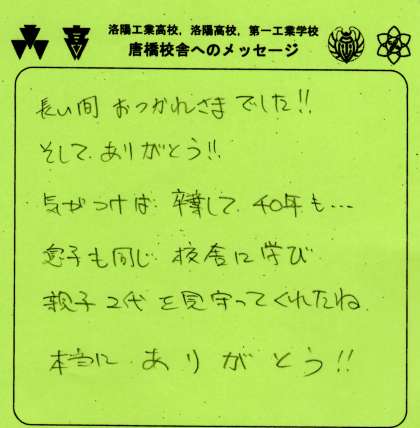 洛陽工業高校，洛陽高校，第一工業学校
唐橋校舎へのメッセージ
長い間 おつかれさまでした!!
そして、ありがとう!!
気がつけば 卒業して、40年も…
息子も同じ 校舎に学び
親子2代を見守ってくれたね
本当に ありがとう!!